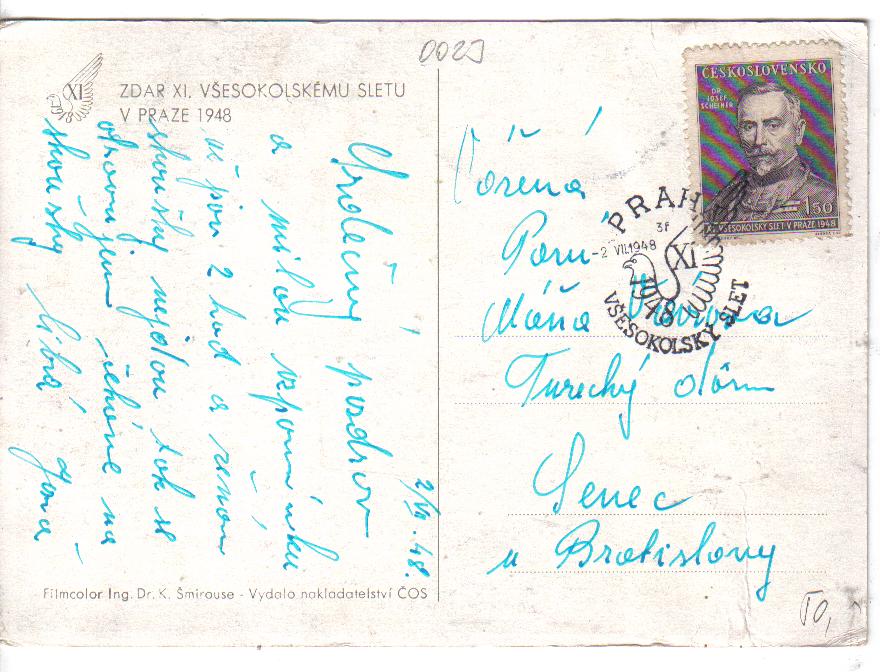 0023
ZDAR XI. VŠESOKOLSKÉMU SLETU
V PRAZE 1948
XI
Srdečný pozdrav
a milou vzpomínku
2 hod a
zkoušky nejdou tak se
jen čekáme na
zkoušky líbá Jana
2/VII. 48.
Filmcolor Ing. Dr. K. Šmirouse - Vydalo nakladatelství ČOS
ČESKOSLOVENSKO
DR JOSEF SCHEINER
1.50
XI. VŠESOKOLSKÝ SLET V PRAZE 1948
PRAHA
-2 VII.1948
XI
1948
VŠESOKOLSKÝ SLET
Vážená
Máňa
Turecký dům
Senec
u Bratislavy